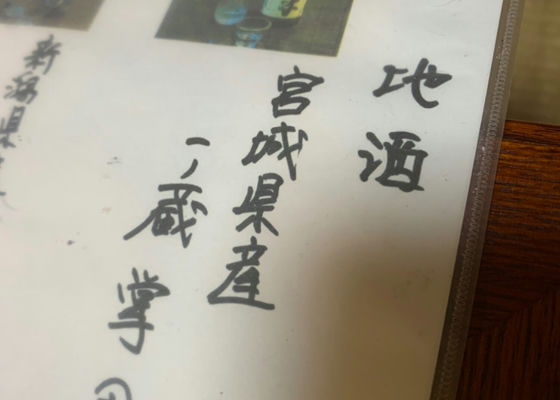 地酒
宮城県産
一ノ蔵 掌
新潟県